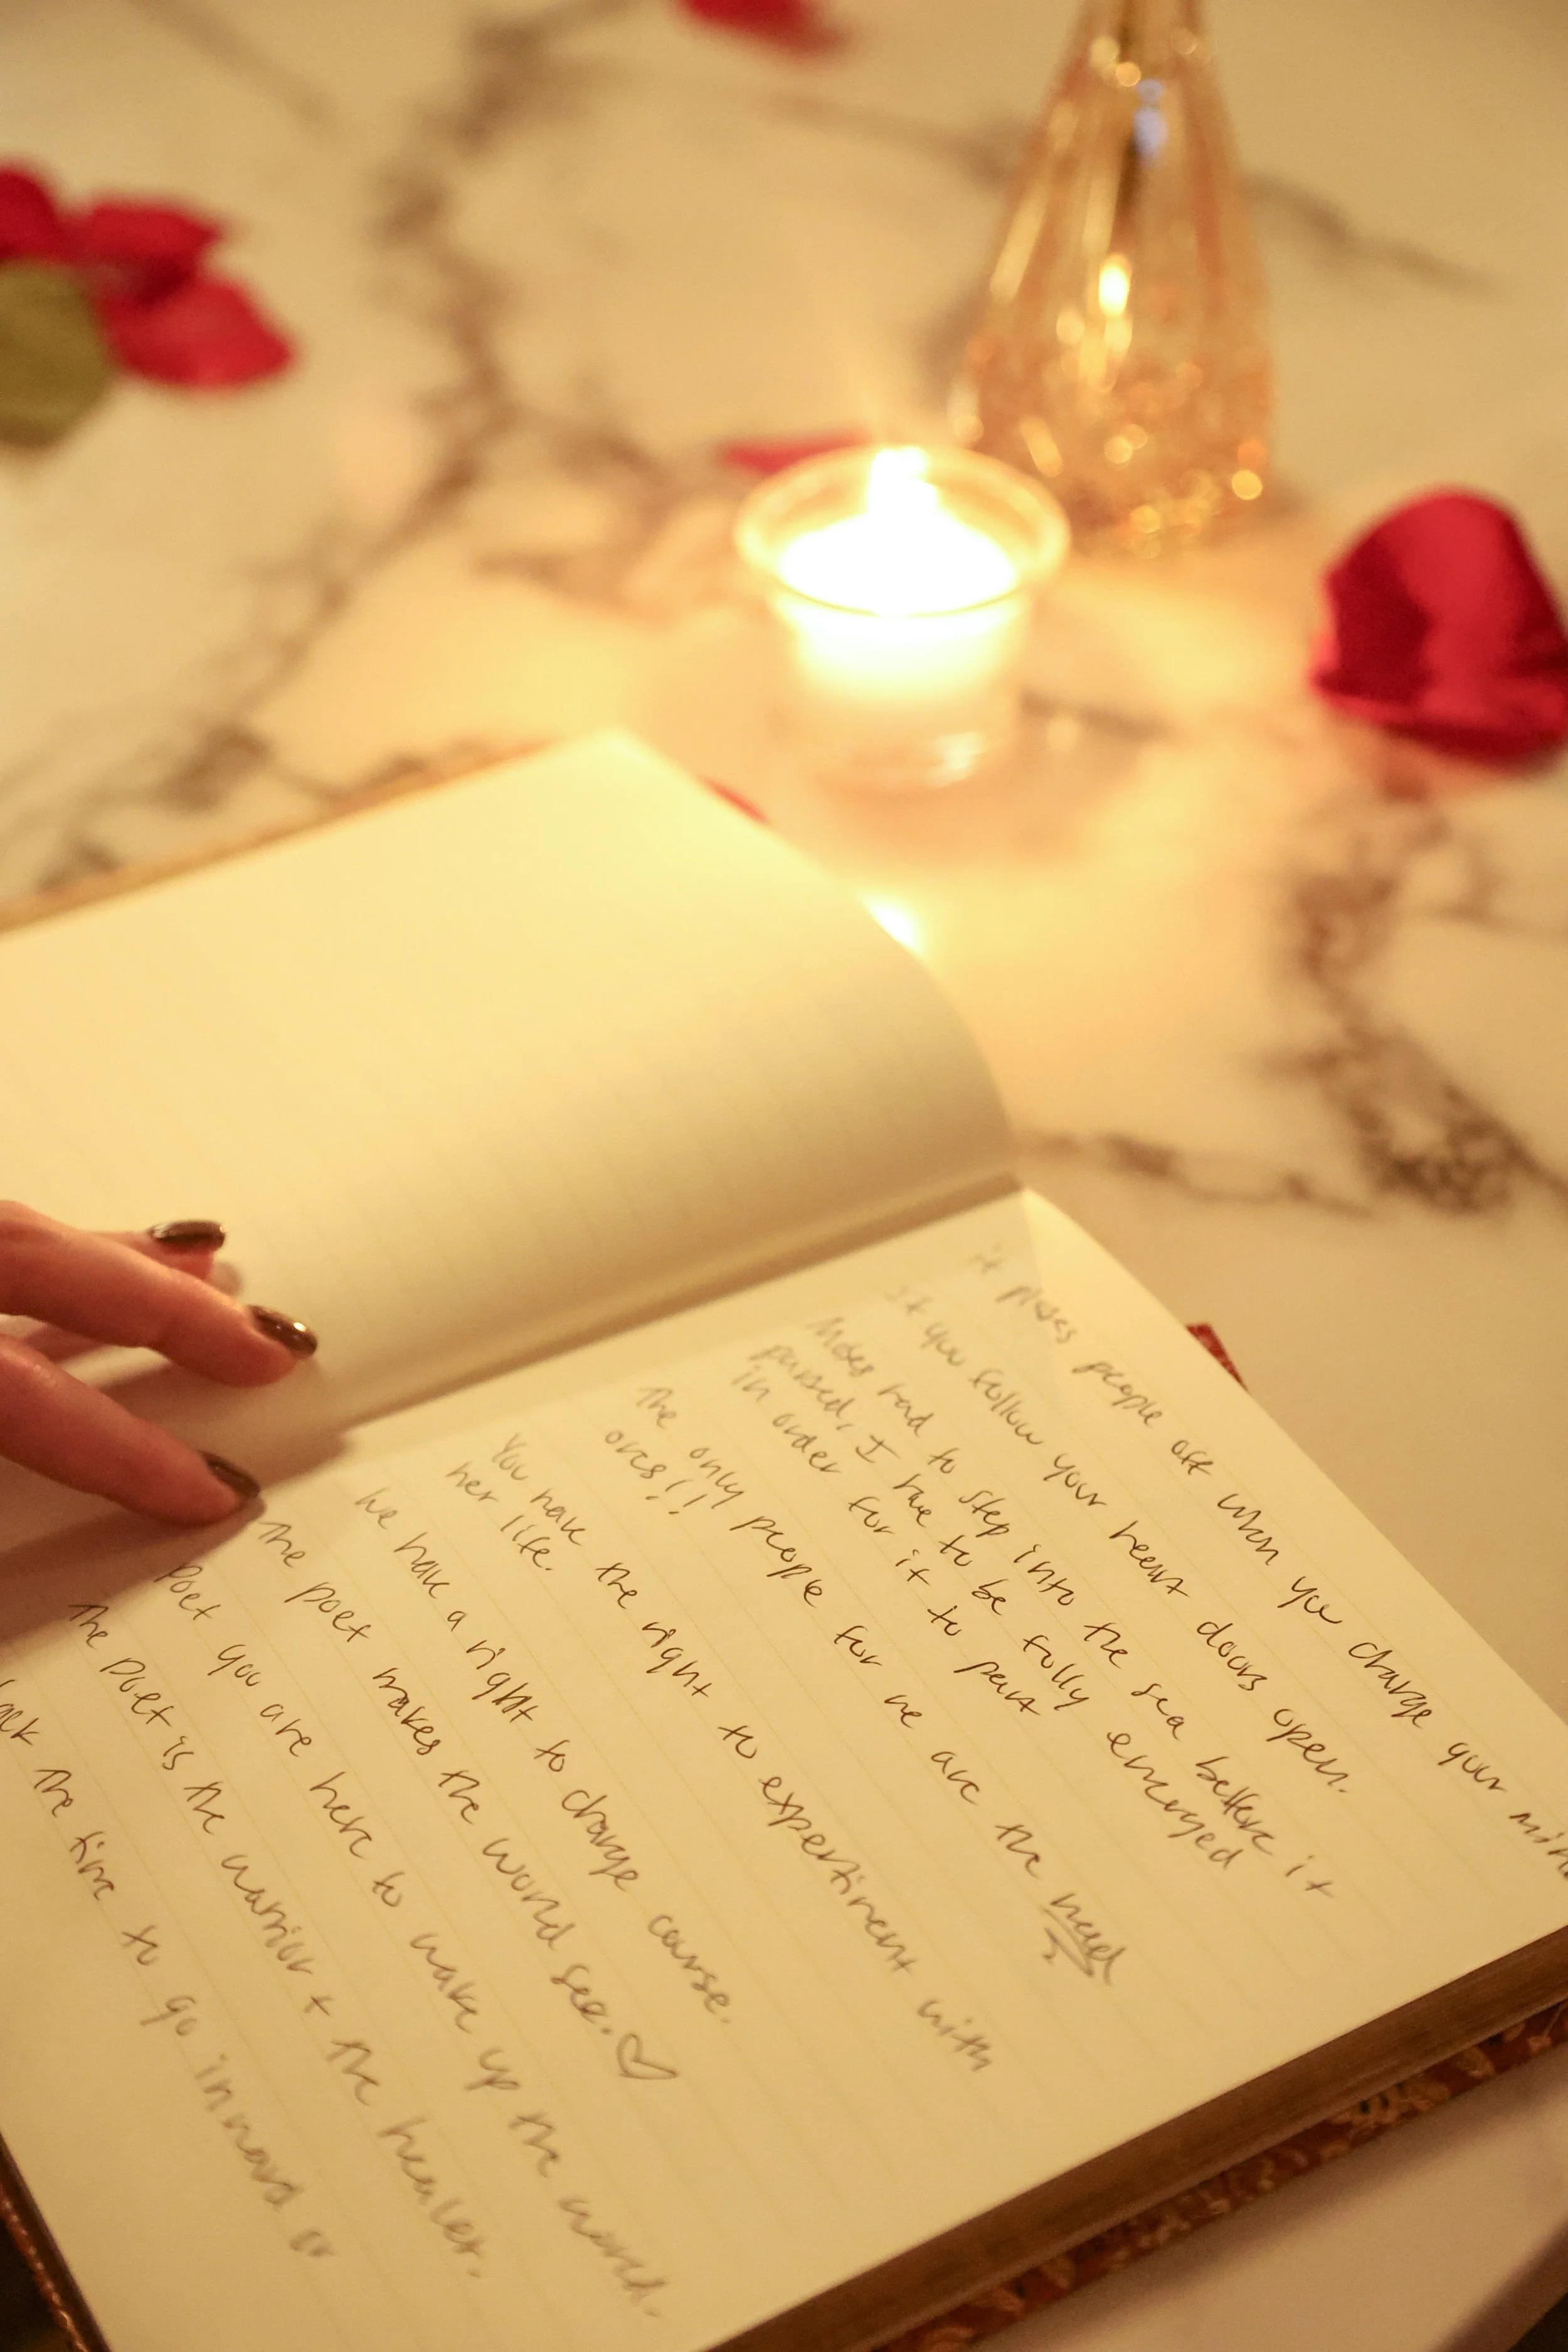 it pisses people off when you change your mind
If you follow your heart doors open.
Moses had to step into the sea before it
parsed, I have to be fully emerged
in order for it to part
The only people for me are the mad
ones!!
You have the right to experiment with
her life.
We have a right to change course.
The poet makes the world see. ♡
Poet you are here to wake up the world.
The poet is the warrior + the healer.
the time to go inward